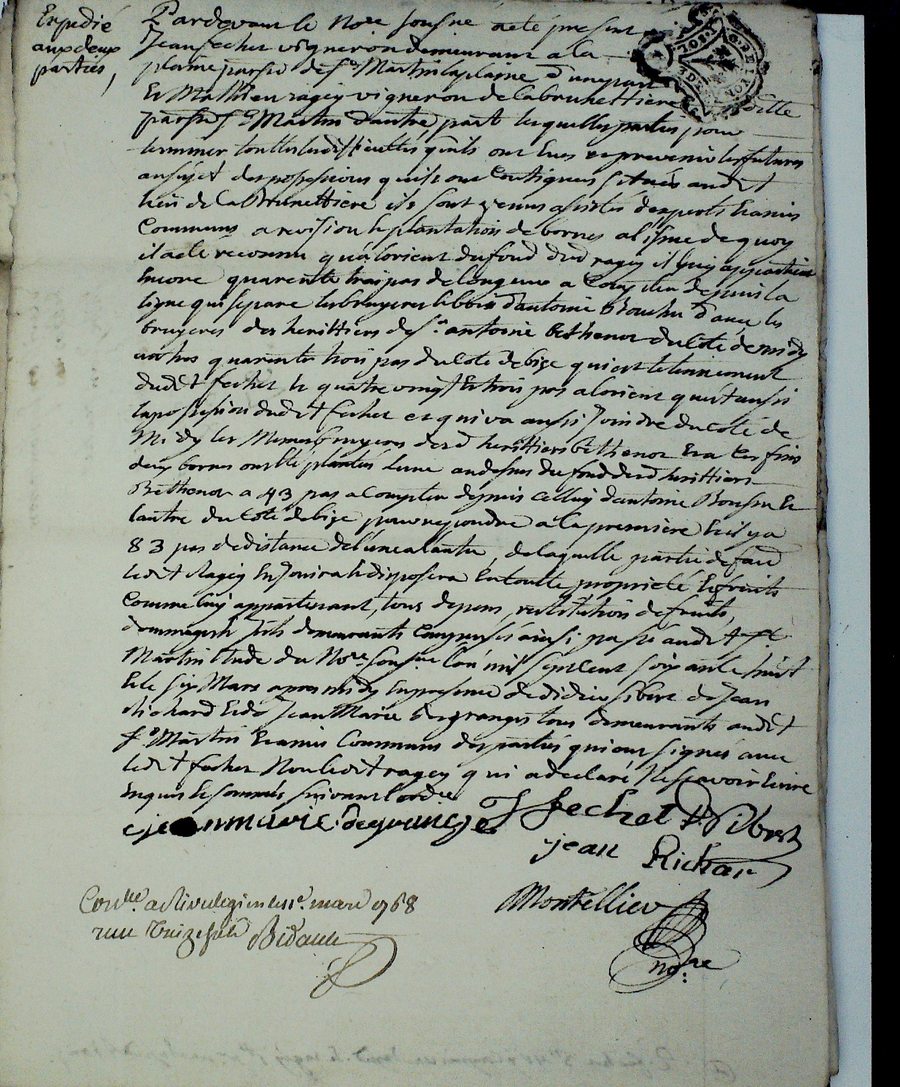 Expedié
aux deux
parties,
Pardevant le No.re sousné a eté present
Jean fechet vigneron demeurant a la
plaine parse de St Martin laplaine d'une part
Et Mathieu ragey vigneron de la brunettiere
parse St Martin d'autre part lesquelles parties pour
terminer touttes les difficultés qu'ils ont eues et prevenir les futures
au sujet des possessions qu'ils ont contigues situés audit
lieu de la Brunettiere ils sont venus assistés d'experts Et amis
Communs a revision Et plantation de bornes a l'issue de quoy
il a eté reconnu qu'a l'orient du fond dud ragey il luy appartient
Encore quarente trois pas de longueur a Compter depuis la
ligne qui separe les bruyeres Et bois d'antoine Bouchu d'avec les
bruyeres des herittiers de Sr antoine Bethenod du Coté de midy
autres quarente trois pas du Coté de bize qui est le tennement
dudit fechet Et quatre vingt Et trois pas a l'orient qui est aussi
la possession dudit fechet et qui va aussi Joindre du Coté de
Midy les Memes bruyeres desd herittiers Bethenod Et a Ces fins
deux bornes ont Eté plantées l'une au dessus du fond desd herittiers
Bethenod a 43 pas a Compter depuis Celluy d'antoine Bouchu Et
l'autre du Coté de bize pour repondre a la premiere Et il y a
83 pas de distance de l'une a l'autre, de laquelle partie de fond
ledit Ragey En Jouira Et disposera En toutte proprieté Et fruits
Comme luy appartenant, tous depens, restitution de fruits,
dommages Interets demeurants Compensés ainsi passé audit St
Martin Etude du No.re sousné l'an mil sept cent soixante huit
Et le six Mars apres midy En presence de didier sibert de Jean
Richard Et de Jean Marie degranges tous demeurants audit
St Martin Et amis Communs des parties qui ont signés avec
ledit fechet Non ledit ragey qui a declaré ne sçavoir Ecrire
Enquis Et sommés suivant l'ordce
jean marie: degrange J fechet D Sibert
jean Richar
Montellier
no.re
Con.lle a Rivedegier le 11e. mars 1768
reçu treize sols Bidault